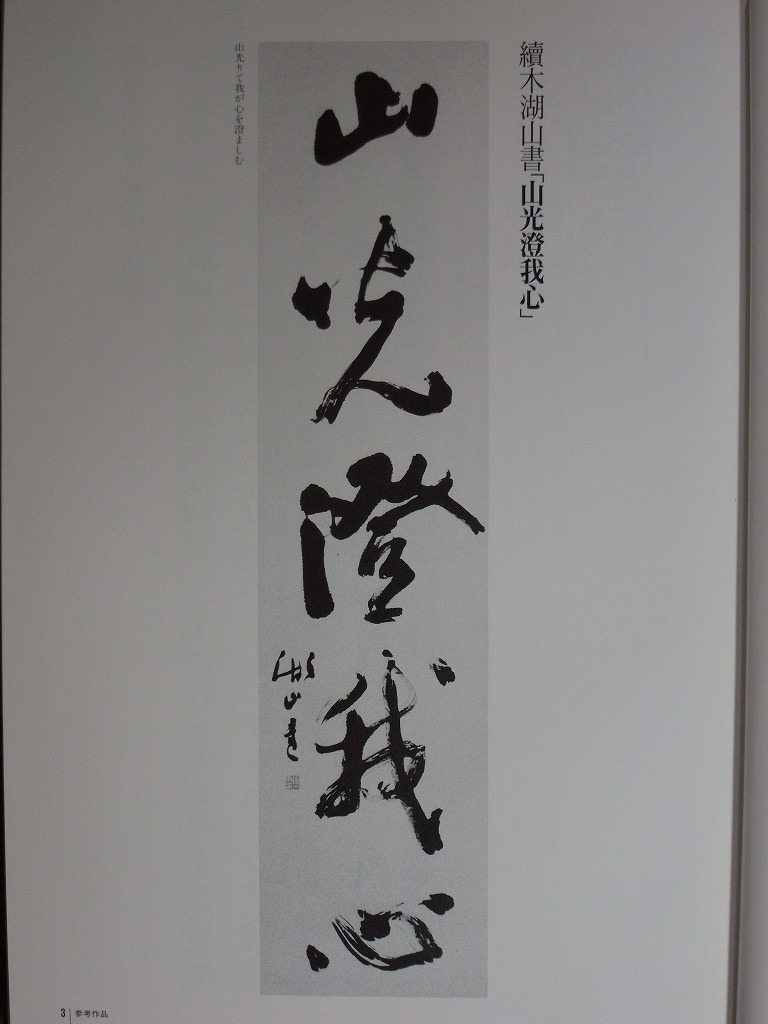 續木湖山書「山光澄我心」
山光澄我心
湖山書
山光りて我が心を澄ましむ
3 参考作品